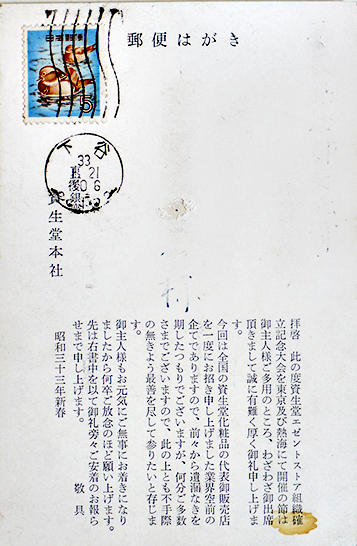 郵便はがき
5
33
21
資生堂本社
様
拝啓　此の度資生堂エゼントストア組織確
立記念大会を東京及び熱海にて開催の節は
御主人様ご多用のところ、わざわざ御出席
頂きまして誠に有難く厚く御礼申し上げま
す。
今回は全国の資生堂化粧品の代表御販売店
を一度にお招き申し上げました業界空前の
企てでありますので、前々から遺漏なきを
期したつもりでございますが、何分ご多数
さまでございますので、此の上とも不手際
の無きよう最善を尽して参りたいと存じま
す。
御主人様もお元気にご無事にお着きになり
ましたから何卒ご放念のほど願い上げます。
先は右書中を以て御礼旁々ご安着のお報ら
せまで申し上げます。
敬具
昭和三十三年新春